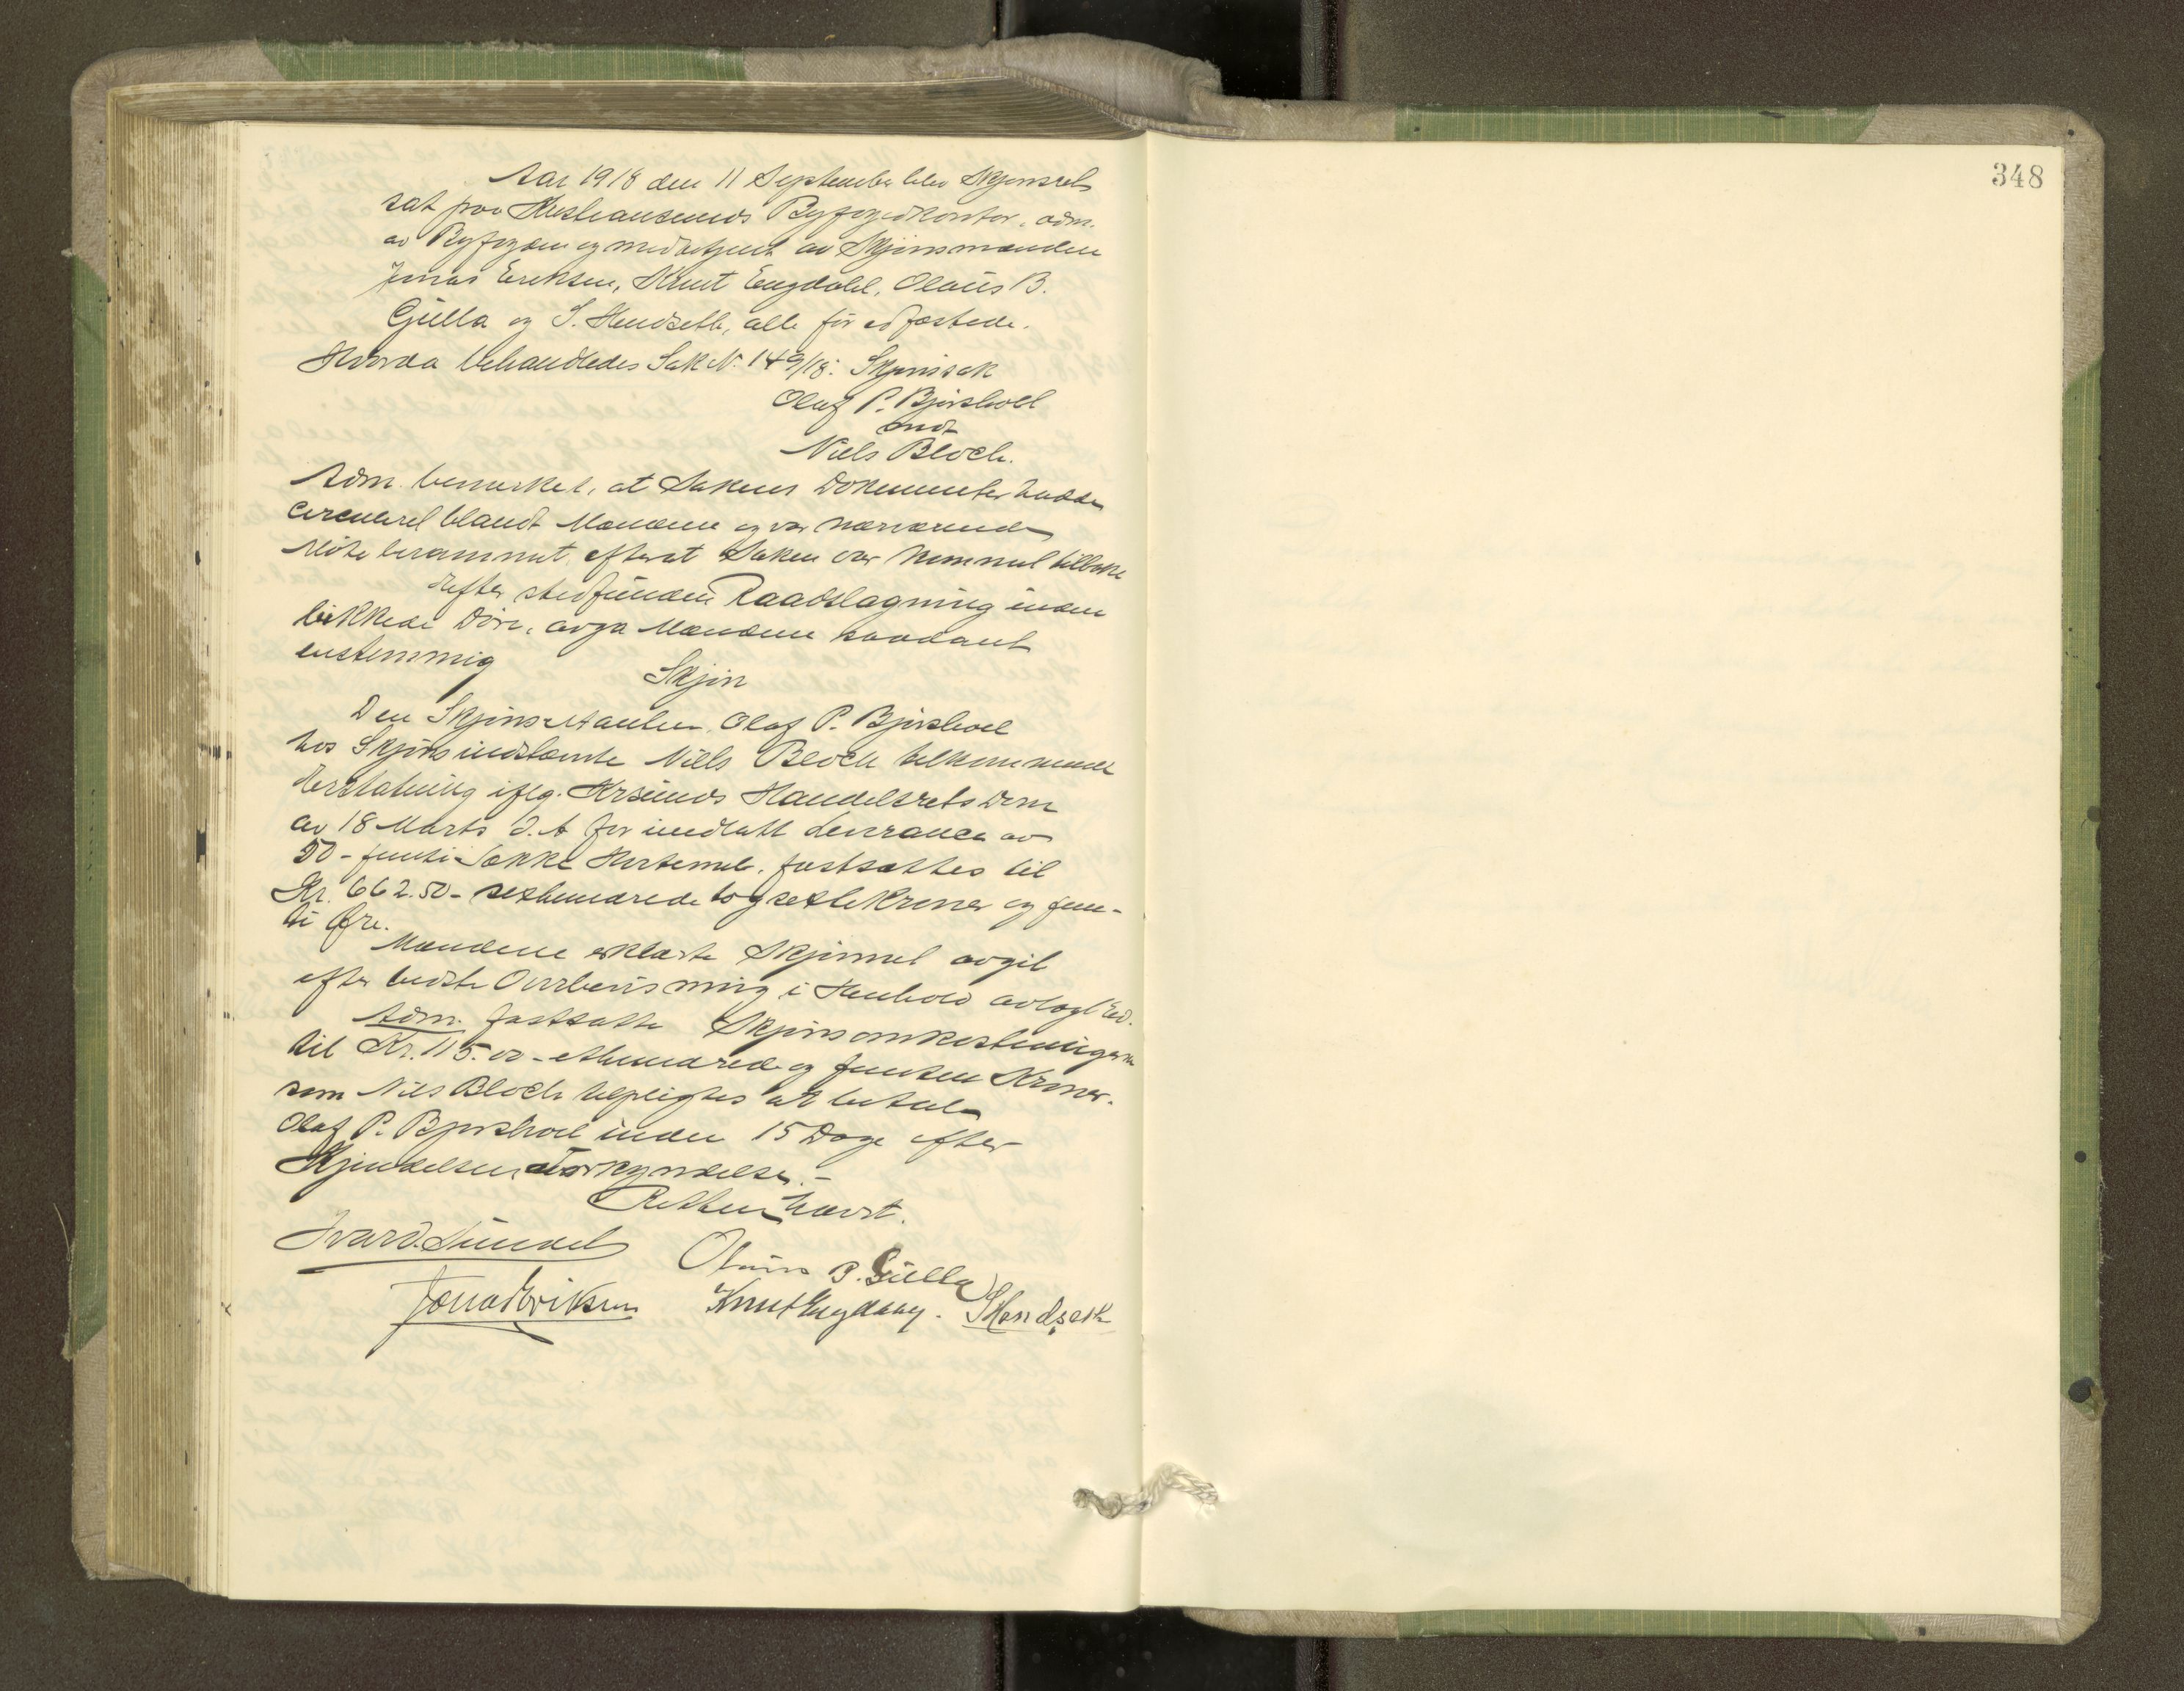 Aar 1918 den 11 September blev Skjønsret
sat paa Kristiansunds Byfogedkontor, adm.
av Byfogden og medbetjent av Skjønsmændene
Jonas Eriksen, Knut Engdahl, Olaus B.
Gülla og S. Hendseth, alle før edfæstede.
Hvorda behandledes Sak N. 149/18: Skjønssak
Olaf P. Bjørshoel
mot
Niels Bloch.
Adm. bemerket, at Sakens Dokumenter hadde
circulerel blandt Mændene og var nærværende
Møte berammet, efterat Saken var kommet tilbake
Efter stedfunden Raadslagning inden
lukkede Døre, avga Mændene saadant
enstemmig
Skjøn
Den Skjønscitanten, Olaf P. Bjørshoel
hos Skjønsindstevnte Niels Bloch tilkommende
Erstatning iflg. Krsunds Handelsrets Dom
av 18 Marts d. A for undlatt Leverance av
50 - femti Sække Hvetemel, fastsættes til
Kr. 662.50 - sexhundrede to og sexti Kroner og fem-
ti Øre.
Mændene erklærte Skjønnet avgit
efter bedste Overbevisning i Henhold avlagt Ed.
Adm. fastsatte Skjønsomkostningerne
til Kr. 115.00 - ethundrede og femten Kroner.
som Niels Bloch tilpligtes at betale
Olaf P. Bjørshoel inden 15 Dage efter
Kjendelsens Forkyndelse. -
Retten hævet.
Ivar D. Sundel
Olaus B. Gülla
Jonas Eriksen Knut Engdahl. S Hendseth
348